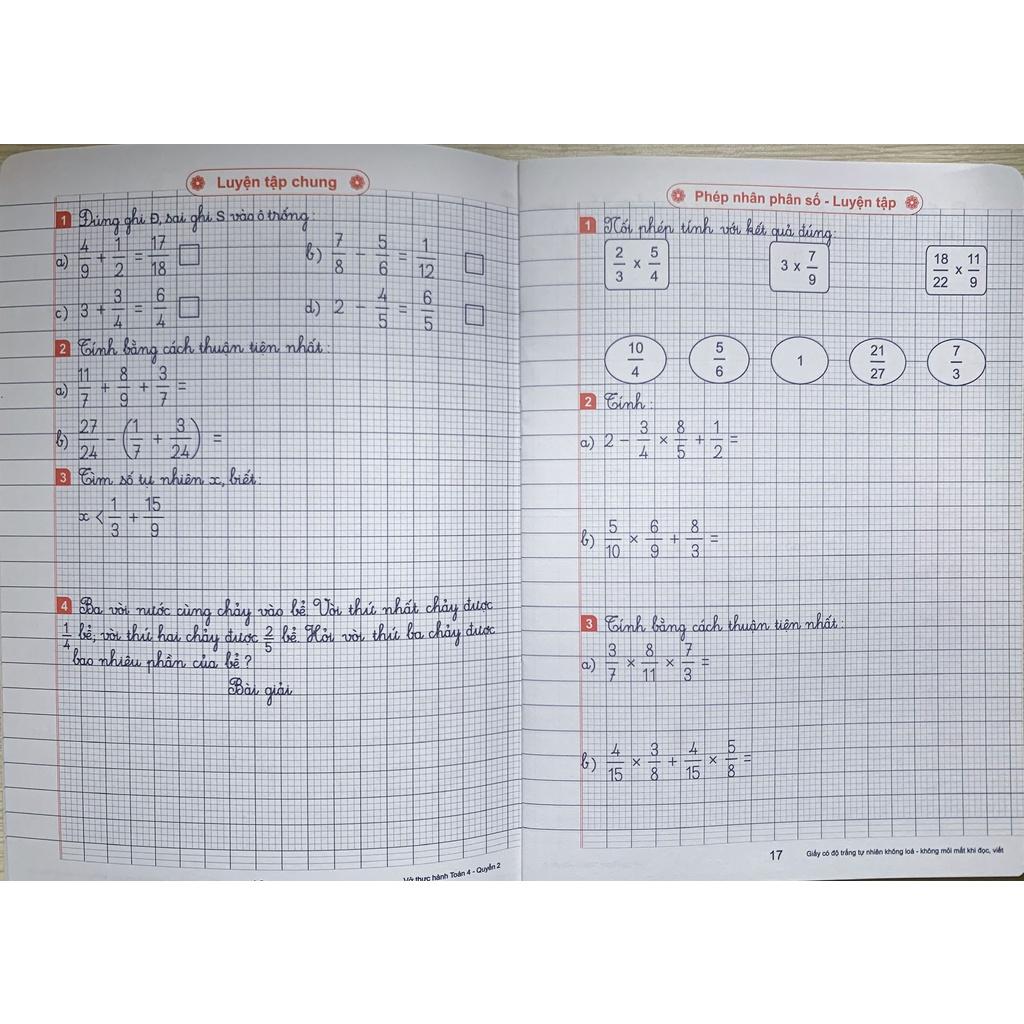 Luyện tập chung
1 Đúng ghi Đ, sai ghi S vào ô trống:
a) 4/9 + 1/2 = 17/18 □ b) 7/8 − 5/6 = 1/12 □
c) 3 + 3/4 = 6/4 □ d) 2 − 4/5 = 6/5 □
2 Tính bằng cách thuận tiện nhất:
a) 11/7 + 8/9 + 3/7 =
b) 27/24 − (1/7 + 3/24) =
3 Tìm số tự nhiên x, biết:
x < 1/3 + 15/9
4 Ba vòi nước cùng chảy vào bể. Vòi thứ nhất chảy được
1/4 bể, vòi thứ hai chảy được 2/5 bể. Hỏi vòi thứ ba chảy được
bao nhiêu phần của bể?
Bài giải
Vở thực hành Toán 4 - Quyển 2
Phép nhân phân số - Luyện tập
1 Nối phép tính với kết quả đúng:
2/3 x 5/4 3 x 7/9 18/22 x 11/9
10/4 5/6 1 21/27 7/3
2 Tính:
a) 2 − 3/4 × 8/5 + 1/2 =
b) 5/10 × 6/9 + 8/3 =
3 Tính bằng cách thuận tiện nhất:
a) 3/7 × 8/11 × 7/3 =
b) 4/15 × 3/8 + 4/15 × 5/8 =
17 Giấy có độ trắng tự nhiên không loá - không mỏi mắt khi đọc, viết